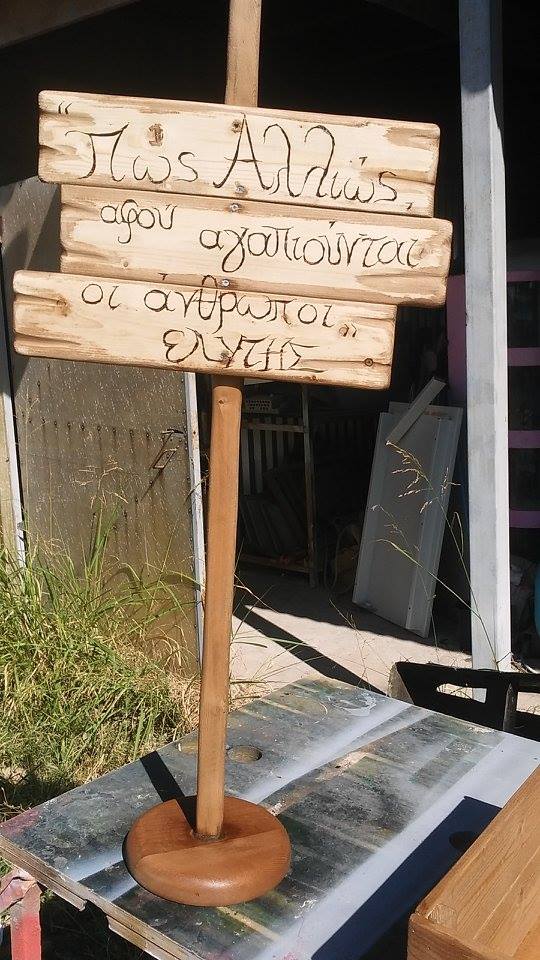 "Πως Αλλιώς,
αφού αγαπιούνται
οι άνθρωποι"
ΕΛΥΤΗΣ